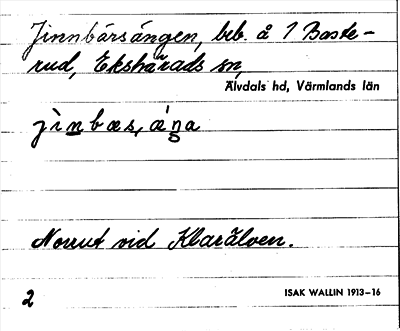 Jinnbärsängen, beb. å 1 Baste-
rud, Ekshärads sn,
Älvdals hd, Värmlands län
jìnbæs, æ´ŋa
Norrut vid Klarälven.
2
ISAK WALLIN 1913–16